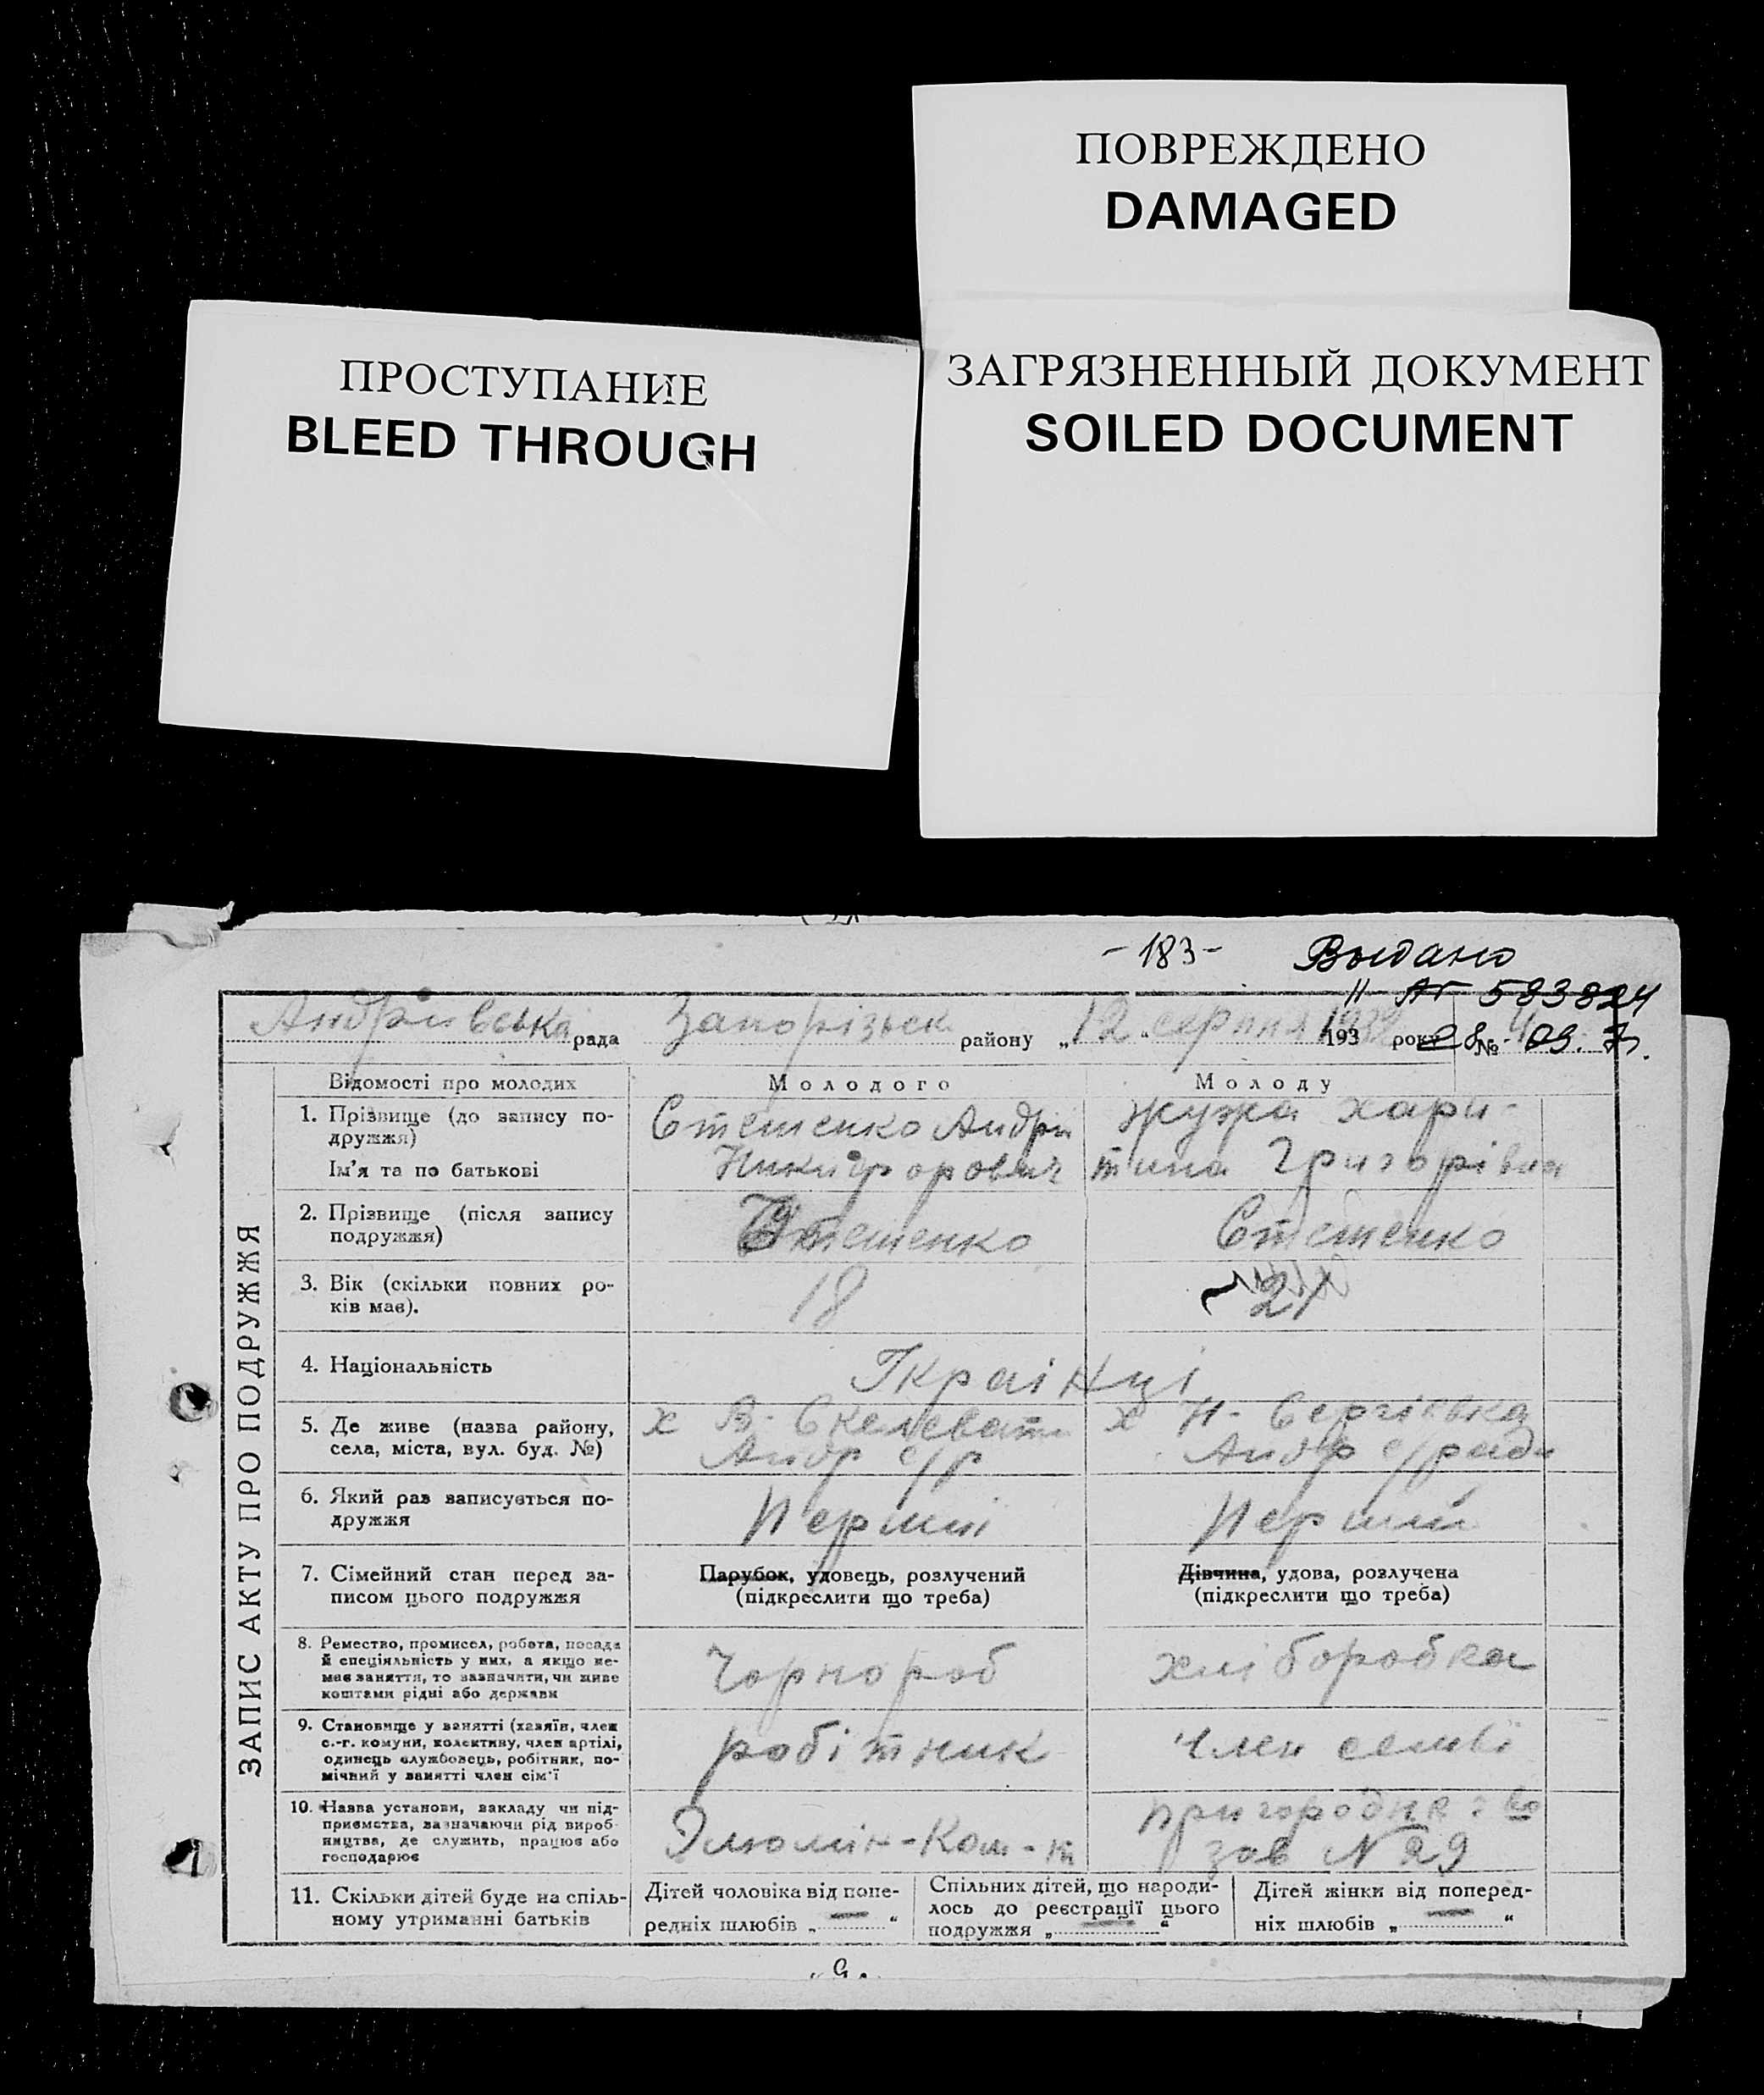 ПОВРЕЖДЕНО
DAMAGED
ПРОСТУПАНИЕ
BLEED THROUGH
ЗАГРЯЗНЕННЫЙ ДОКУМЕНТ
SOILED DOCUMENT
-183- Выдано
II АГ 583824
Андріївська рада Запорізьск району „12“ серпня 193 року № 4
28 09. 7
ЗАПИС АКТУ ПРО ПОДРУЖЖЯ
Відомості про молодих
Молодого
Молоду
1. Прізвище (до запису по-
дружжя)
Ім'я та по батькові
Стешенко Андрій
Никифорович
Жужа Хари-
тина Григорівна
2. Прізвище (після запису
подружжя)
Стешенко
Стешенко
3. Вік (скільки повних ро-
ків має).
18
21
4. Національність
Українці
5. Де живе (назва району,
села, міста, вул. буд. №)
х В- Скелевати
Андр с/р
х Н- Сергіївка
Андр с/ради
6. Який раз записується по-
дружжя
Перший
Перший
7. Сімейний стан перед за-
писом цього подружжя
Парубок, удовець, розлучений
(підкреслити що треба)
Дівчина, удова, розлучена
(підкреслити що треба)
8. Ремество, промисел, робота, посада
й спеціяльність у них, а якщо не-
має заняття, то зазначити, чи живе
коштами рідні або держави
Чорнороб
хліборобка
9. Становище у занятті (хазяїн, член
с.-г. комуни, колективу, член артілі,
одинець службовець, робітник, по-
мічний у занятті член сім'ї
робітник
член семьї
10. Назва установи, закладу чи під-
приємства, зазначаючи рід вироб-
ництва, де служить, працює або
господарює
Элюмін-Ком-т
пригородне
зав N 29
11. Скільки дітей буде на спіль-
ному утриманні батьків
Дітей чоловіка від попе-
редніх шлюбів „ — “
Спільних дітей, що народи-
лось до реєстрації цього
подружжя „ — “
Дітей жінки від поперед-
ніх шлюбів „ — “